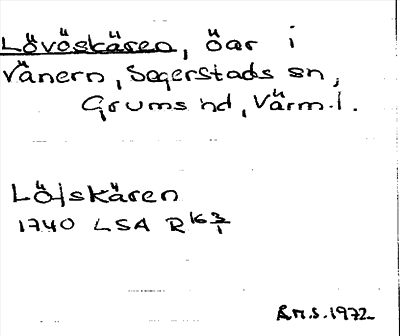 Lövöskären, öar i
Vänern, Segerstads sn,
Grums hd, Värm.l.
Löjskären
1740 LSA R16 3/1
R.M.S. 1972